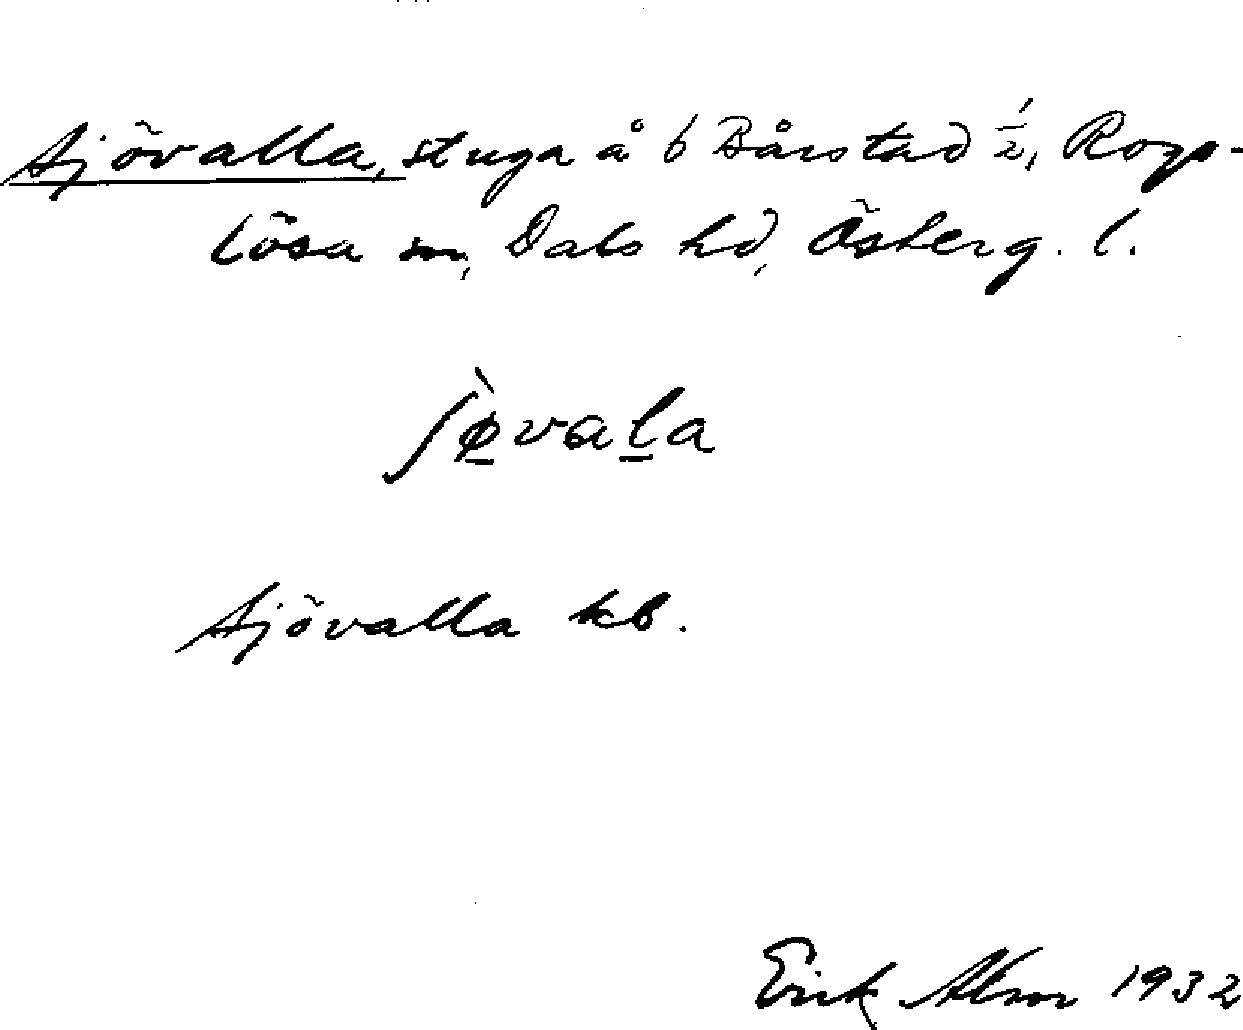 Sjövalla, stuga å 6 Bårstad 1/2, Rogs-
lösa sn, Dals hd, Österg. l.
ʃø̀vala
Sjövalla kb.
Erik Abrn 1932